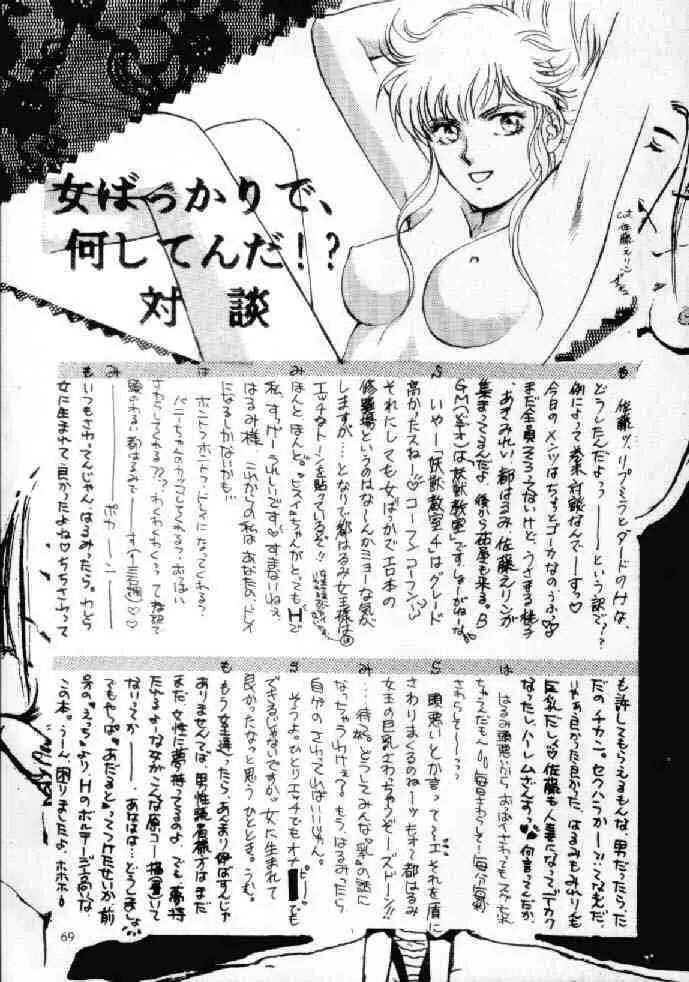 女ばっかりで、
何してんだ!?
対談
cut 佐藤えりん
も 佐藤ッ、リプミラとダードのHな、
どうしたんだよっっ―――という訳で??
例によって巻末対談なんで―すっ♡
今日のメンツはちょっとゴーカなのうふっ♡
まだ全員そろってないけど、うさする桃子
、あきみれい、都はるみ、佐藤えりんが
集まってるんだよ。後から苗屋も来る。B
GM(ビデオ)は「妖獣教室」です、しょーがねーな
ら いやー「妖獣教室チ」はグレード
高かったスねー♡コーフンコーフン
それにしても女ばっかでエロ本の
修羅場というのはなーんかミョーな気が
しますが…となりで都はるみ女王様は
エッチなトーンを貼っているぞ!!
み ほんと、ほんと。"ヒスイ"ちゃんがとっても"H"で
私、すっげーうれしいです♡すまないねぇ
はるみ様、これからの私はあなたの、ドレイ
になるしかないかも…
は ホントっホントっドレイになってくれる?
バニーちゃんのカッコしてくれる?おっぱい
さわらしてくれる??わくわくわくっってな訳で
頭のわるい都はるみで――す(三石調)♡
み ――――ポカ――ン――――
も いつもさわってんじゃん、はるみったら。わたし
女に生まれて良かったよね♡ちちさわって
も許してもらえるもんな、男だったらた
だのチカン。セクハラかー?!ってなもんだ。
いやぁ良かった良かった、はるみもみんなりんも
巨乳だし♡佐藤も人妻になってデカク
なったし、ハーレムさんよっ♡何言ってんだか、
は はるみ頭悪いからおっぱいさわってもスグ忘れ
ちゃえだもーん。毎日さわらして〜毎分毎秒
さわらして〜〜っ?
ら 頭悪いとか言ってーエそれを盾に
さわりまくるのねーッ、もォて都はるみ
女王の巨乳さわっちゃうぞーズドーン!!
み …待てどうしてみんな。乳の話に
なっちゃうわけぇ?もう、はるみったら
自分のさわってればいいじゃん。
ら そうよ。ひとりエッチでもオナ■ピーでも
できるじゃないですか。女に生まれて
良かったなっと思うひととき。うむ。
も もう女王達ったら、あんまり伊はずんじゃ
ありませんてば、男性読者様方はまだ
まだ女性に夢持ってるのよ、でも夢持
たせるよーな女がこんな原コー描いて
なりってか――。あははは…どうしまし。
でもやっぱ"あだるど"ってつけたせいか、前
号の"えっち"より、Hのボルテージ高いな、
この本。うーん、困りましたよ、ホホホ。
69